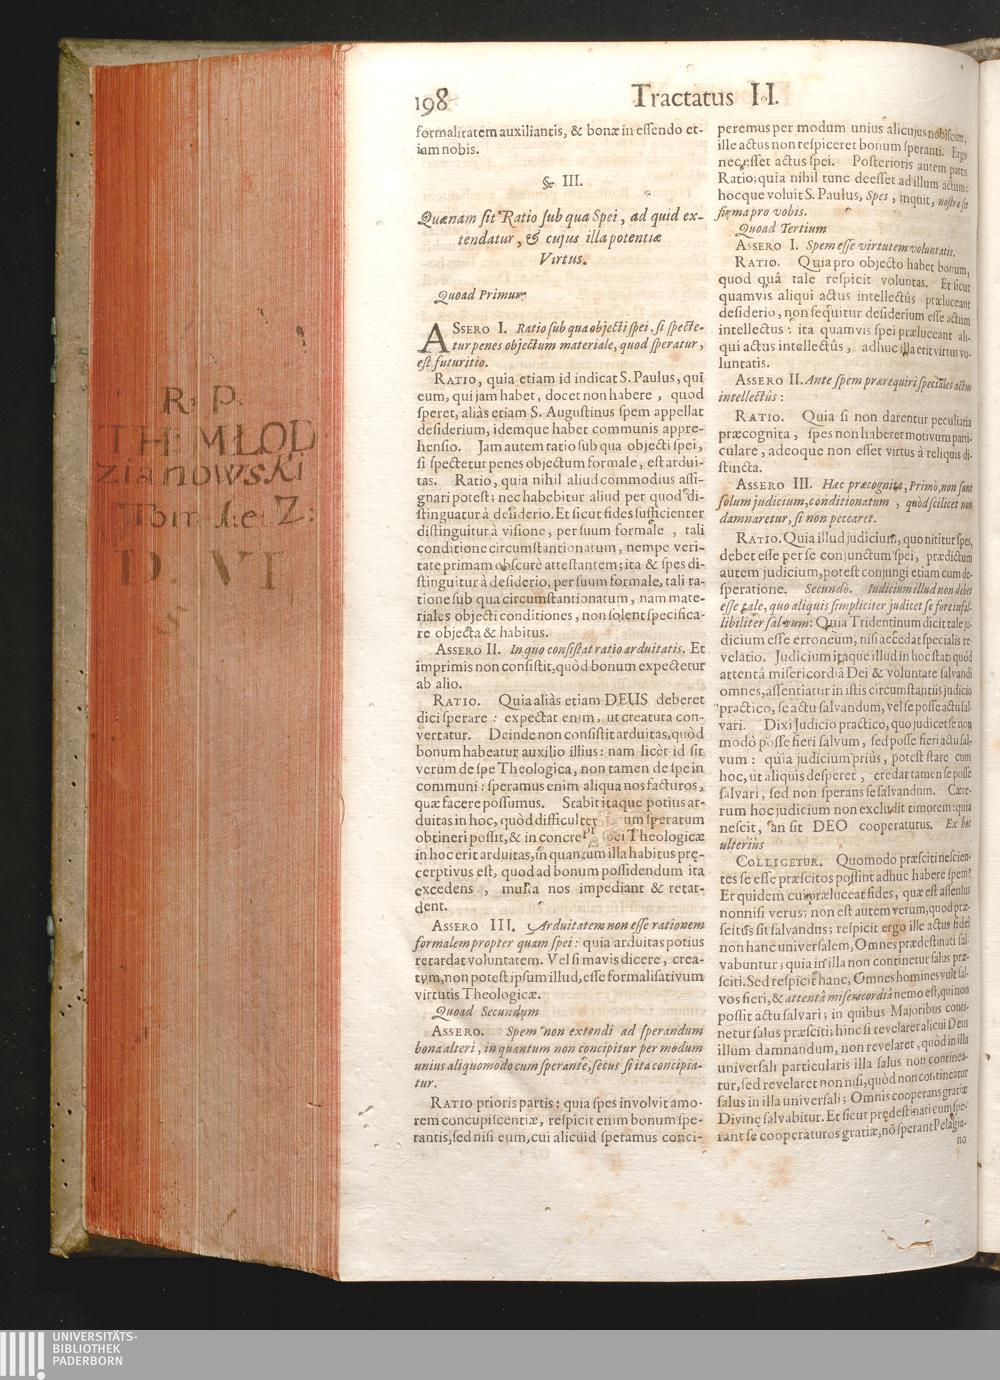 198
Tractatus II.
formalitatem auxiliantis, & bonæ in eſſendo et-
iam nobis.
§. III.
Quænam ſit Ratio ſub qua Spei, ad quid ex-
tendatur, & cujus illa potentiæ
Virtus.
Quoad Primum
ASSERO I. Ratio ſub qua objecti ſpei, ſi ſpecte-
tur penes objectum materiale, quod ſperatur,
eſt futuritio.
RATIO, quia etiam id indicat S. Paulus, qui
eum, qui jam habet, docet non habere, quod
ſperet, aliàs etiam S. Auguſtinus ſpem appellat
deſiderium, idemque habet communis appre-
henſio. Jam autem ratio ſub qua objecti ſpei,
ſi ſpectetur penes objectum formale, eſt ardui-
tas. Ratio, quia nihil aliud commodius aſſi-
gnari poteſt; nec habebitur aliud per quod di-
ſtinguatur à deſiderio. Et ſicut fides ſufficienter
diſtinguitur à viſione, per ſuum formale, tali
conditione circumſtantionatum, nempe veri-
tate primam obſcurè atteſtantem; ita & ſpes di-
ſtinguitur à deſiderio, per ſuum formale, tali ra-
tione ſub qua circumſtantionatum, nam mate-
riales objecti conditiones, non ſolent ſpecifica-
re objecta & habitus.
ASSERO II. In quo conſiſtat ratio arduitatis. Et
imprimis non conſiſtit, quòd bonum expectetur
ab alio.
RATIO. Quia aliàs etiam DEUS deberet
dici ſperare: expectat enim, ut creatura con-
vertatur. Deinde non conſiſtit arduitas, quòd
bonum habeatur auxilio illius: nam licèt id ſit
verum de ſpe Theologica, non tamen de ſpe in
communi: ſperamus enim aliqua nos facturos,
quæ facere poſſumus. Stabit itaque potius ar-
duitas in hoc, quòd difficulter um ſperatum
obtineri poſſit, & in concreto ſpei Theologicæ
in hoc erit arduitas, in quantum illa habitus pręc-
cerptivus eſt, quod ad bonum poſſidendum ita
excedens, multa nos impediant & retar-
dent.
ASSERO III. Arduitatem non eſſe rationem
formalem propter quam ſpei: quia arduitas potius
retardat voluntatem. Vel ſi mavis dicere, crea-
tum, non poteſt ipſum illud, eſſe formaliſativum
virtutis Theologicæ.
Quoad Secundum
ASSERO. Spem non extendi ad ſperandum
bona alteri, in quantum non concipitur per modum
unius aliquomodo cum ſperante, ſecus ſi ita concipia-
tur.
RATIO prioris partis: quia ſpes involvit amo-
rem concupiſcentiæ, reſpicit enim bonum ſpe-
rantis, ſed niſi eum, cui alicuid ſperamus conci-
peremus per modum unius alicujus nobiſcum,
ille actus non reſpiceret bonum ſperanti. Ergo
nec eſſet actus ſpei. Poſterioris autem partis
Ratio: quia nihil tunc deeſſet ad illum actum:
hocque voluit S. Paulus, Spes, inquit, noſtra ſit
firma pro vobis.
Quoad Tertium
ASSERO I. Spem eſſe virtutem voluntatis.
RATIO. Quia pro objecto habet bonum,
quod quâ tale reſpicit voluntas. Et ſicut
quamvis aliqui actus intellectûs præluceant
deſiderio, non ſequitur deſiderium eſſe actum
intellectus: ita quamvis ſpei præluceant ali-
qui actus intellectûs, adhuc illa erit virtus vo-
luntatis.
ASSERO II. Ante ſpem prærequiri ſpeciales actus
intellectûs:
RATIO. Quia ſi non darentur peculiaria
præcognita, ſpes non haberet motivum parti-
culare, adeoque non eſſet virtus à reliquis di-
ſtincta.
ASSERO III. Hæc præcognita, Primò, non ſunt
ſolum judicium, conditionatum, quòd ſcilicet non
damnaretur, ſi non peccaret.
RATIO. Quia illud judicium, quo nititur ſpes,
debet eſſe per ſe conjunctum ſpei, prædictum
autem judicium, poteſt conjungi etiam cum de-
ſperatione. Secundò. Iudicium illud non debet
eſſe tale, quo aliquis ſimpliciter judicet ſe fore infal-
libiliter ſalvum: Quia Tridentinum dicit tale ju-
dicium eſſe erroneum, niſi accedat ſpecialis re-
velatio. Judicium itaque illud in hoc ſtat: quòd
attentâ miſericordiâ Dei & voluntate ſalvandi
omnes, aſſentiatur in iſtis circumſtantiis judicio
practico, ſe actu ſalvandum, vel ſe poſſe actu ſal-
vari. Dixi Judicio practico, quo judicet ſe non
modò poſſe fieri ſalvum, ſed poſſe fieri actu ſal-
vum: quia judicium priùs, poteſt ſtare cum
hoc, ut aliquis deſperet, credat tamen ſe poſſe
ſalvari, ſed non ſperans ſe ſalvandum. Cæte-
rum hoc judicium non excludit timorem: quia
neſcit, an ſit DEO cooperaturus. Ex hoc
ulteriùs
COLLIGETUR. Quomodo præſciti neſcien-
tes ſe eſſe præſcitos poſſint adhuc habere ſpem?
Et quidem cui præluceat fides, quæ eſt aſſenſus
nonniſi verus; non eſt autem verum, quod præ-
ſcitus ſit ſalvandus; reſpicit ergo ille actus fidei
non hanc univerſalem, Omnes prædeſtinati ſal-
vabuntur; quia in illa non continetur ſalus præ-
ſciti. Sed reſpicit hanc, Omnes homines vult ſal-
vos fieri, & attentâ miſericordiâ nemo eſt, qui non
poſſit actu ſalvari; in quibus Majoribus conti-
netur ſalus præſciti; hinc ſi revelaret alicui Deus
illum damnandum, non revelaret, quòd in illa
univerſali particularis illa ſalus non continea-
tur, ſed revelaret non niſi, quòd non contineatur
ſalus in illa univerſali; Omnis cooperans gratiæ
Divinę ſalvabitur. Et ſicut prędeſtinati cum ſpe-
rant ſe cooperaturos gratiæ, nõ ſperant Pelagia-
no
R: P:
TH: MŁOD
zianowski
Tom I: et Z:
D. VI
S
UNIVERSITÄTS-
BIBLIOTHEK
PADERBORN